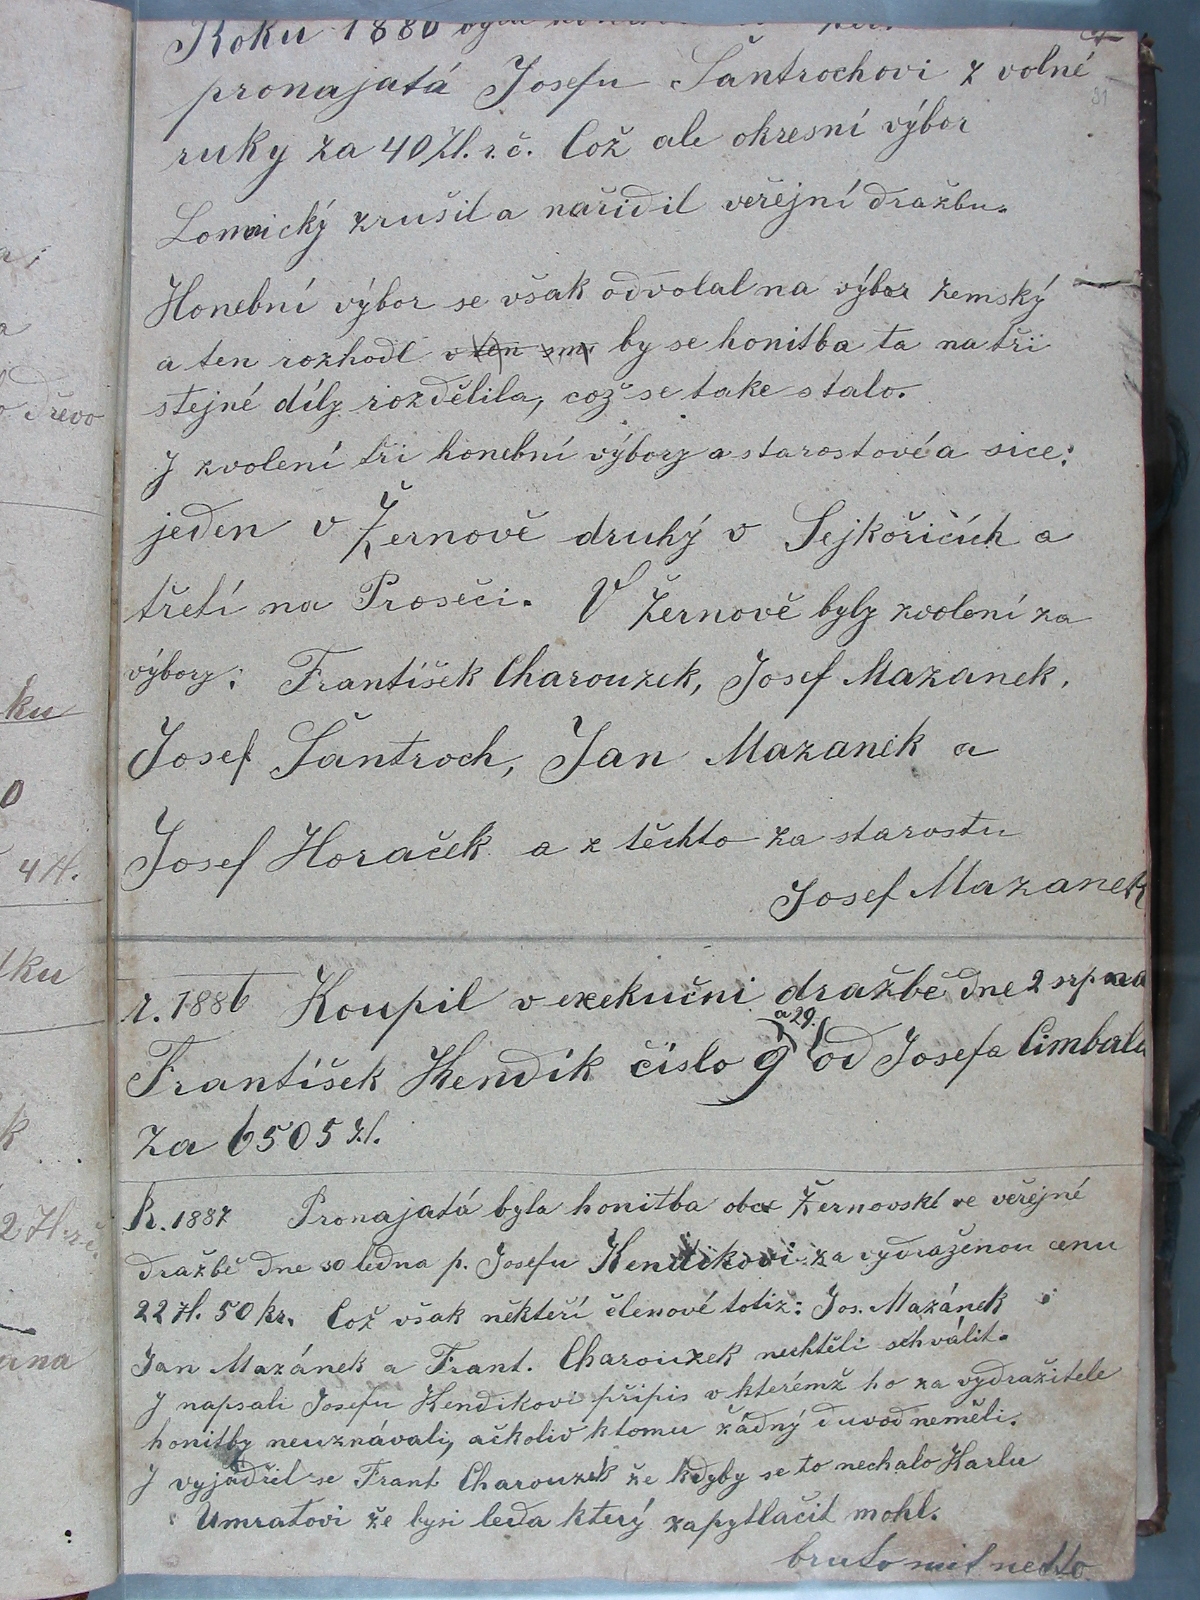 Roku 1886 byla
pronajatá Josefu Šantrochovi z volné
ruky za 40 Zl. r. č. Což ale okresní výbor
Lomnický zrušil a nařidil veřejní dražbu.
Honební výbor se však odvolal na výbor zemský
a ten rozhodl v ten sm. by se honitba ta na tři
stejné díly rozdělila, což se take stalo.
J zvolení tři honební výbory a starostové a sice:
jeden v Žernově druhý v Sejkořicích a
třetí na Proseči. V Žernově byly zvolení za
výbory: František Charouzek, Josef Mazanek,
Josef Šantroch, Jan Mazanek a
Josef Horaček a z těchto za starostu
Josef Mazanek
r. 1886 Koupil v exekučni dražbě dne 2 srpna
a 29.
František Hendik číslo 9 od Josefa Cimbala
za 6505 zl.
R. 1887 Pronajatá byla honitba obce Žernovské ve veřejné
dražbě dne 30 ledna p. Josefu Kendikovi za vydraženou cenu
22 zl. 50 kr. Což však někteří členové totiz: Jos. Mazánek
Jan Mazánek a Frant. Charouzek nechtěli schválit.
J napsali Josefu Hendikovi připis v kterémž ho za vydražitele
honitby neuznávali, ačkoliv ktomu žádný duvod neměli.
J vyjádřil se Frant Charouzek že kdyby se to nechalo Karlu
Umratovi že bysi leda který zapytlačit mohl.
bruto mit netto
4
31
a;
a
dřevo
ku
0
4 zl.
ku
k
2 Zl. r. č.
ana